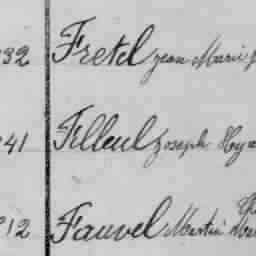 32 Fretel Jean Marie
41 Filleul Joseph Hya
12 Fauvel Martin